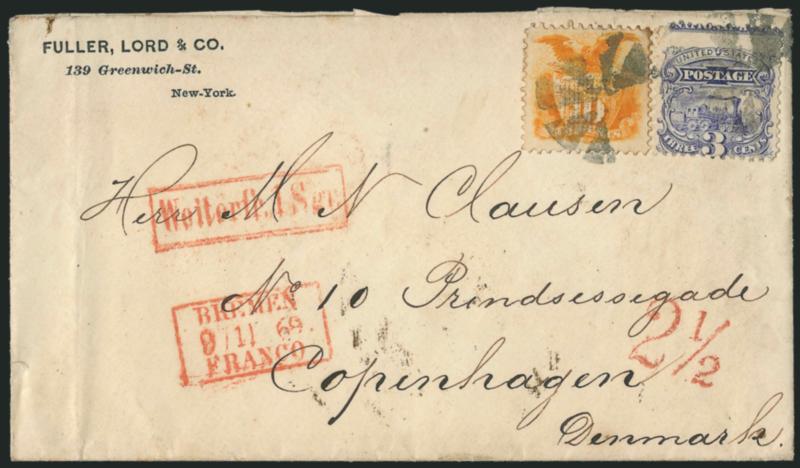 FULLER, LORD & CO.
139 Greenwich-St.
New-York.
UNITED STATES
POSTAGE
THREE 3 CENTS
10
Weiterfr. 1 Sgr
Herr M N Clausen
No 10 Prindsessegade
Copenhagen
Denmark.
BREMEN
9 11 69
FRANCO
2 1/2